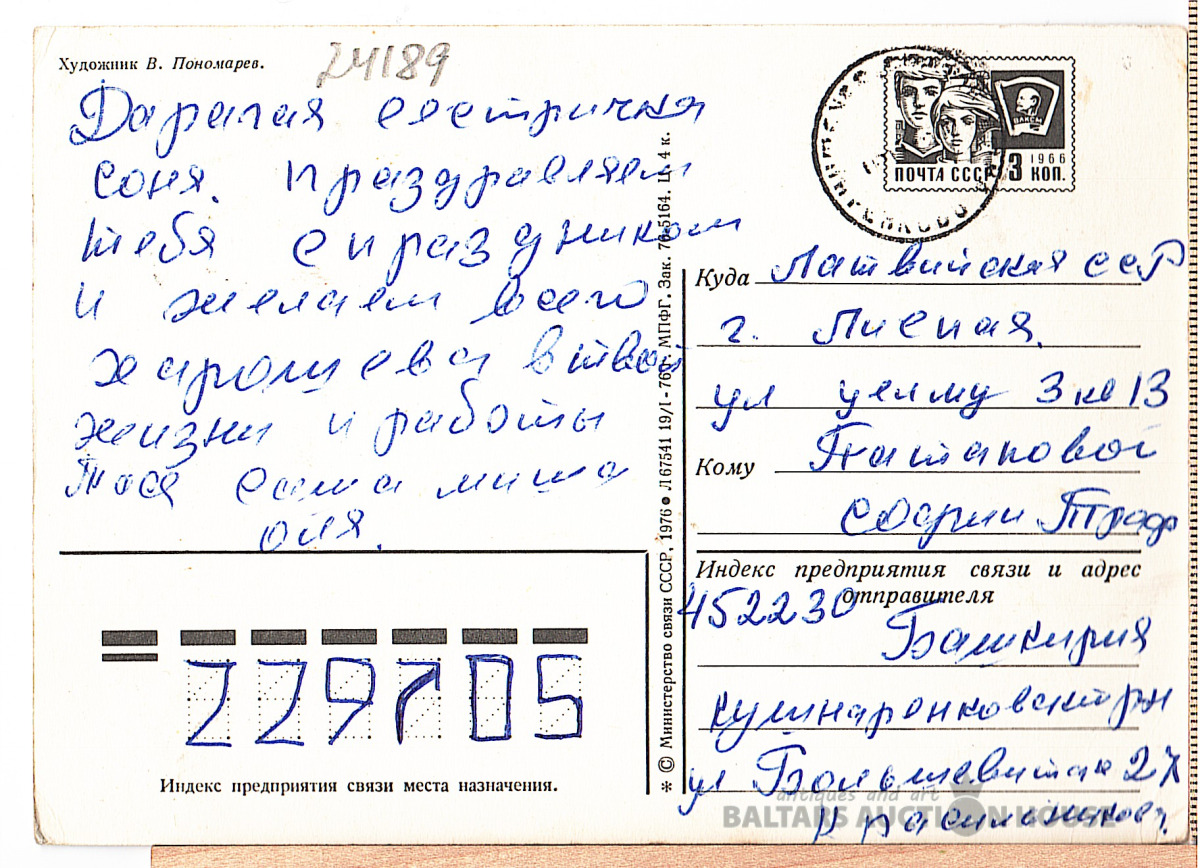 Художник В. Пономарев.
24189
Дарагая сестричка
Соня. Праздравляем
тебя с праздником
и желаем всего
харошева в твоей
жизни и работы
Тося Саша миша
оля.
ПОЧТА СССР
1966
3 КОП.
ВЛКСМ
Куда Латвийская ССР
г. Лиепая.
ул Уелму 3 кв 13
Кому Патаповой
Софии Траф
Индекс предприятия связи и адрес
отправителя
452230
Башкирия
кушнаренковский рн
ул Большевитская 27
229705
Индекс предприятия связи места назначения.
* © Министерство связи СССР, 1976 ● Л 67541 19/I-76 г. МПФГ. Зак. 76-5164. Ц. 4 к.
antiques and art
BALTARS AUCTION HOUSE